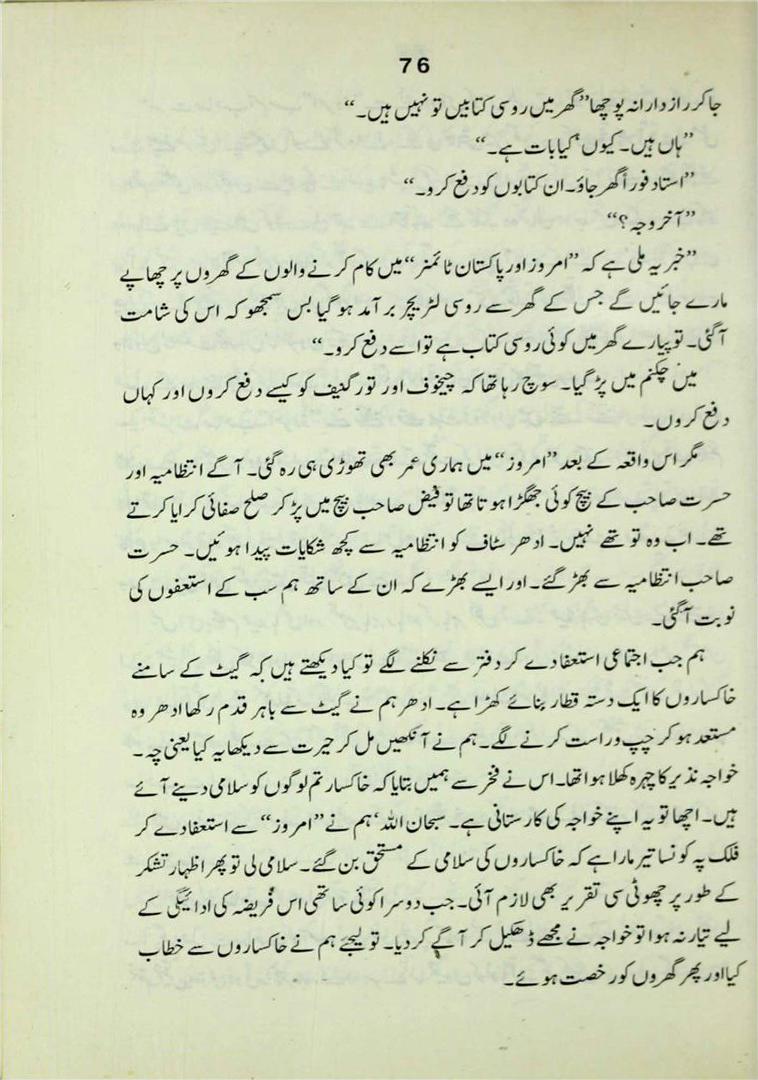 76
جا کر رازدارانہ پوچھا ”گھر میں روسی کتابیں تو نہیں ہیں۔“
”ہاں ہیں۔ کیوں‘ کیا بات ہے۔“
”استاد فوراً گھر جاؤ۔ ان کتابوں کو دفع کرو۔“
”آخر وجہ؟“
”خبر یہ ملی ہے کہ ”امروز اور پاکستان ٹائمنر“ میں کام کرنے والوں کے گھروں پر چھاپے
مارے جائیں گے جس کے گھر سے روسی لٹریچر بر آمد ہو گیا بس سمجھو کہ اس کی شامت
آگئی۔ تو پیارے گھر میں کوئی روسی کتاب ہے تو اسے دفع کرو۔“
میں چکنم میں پڑ گیا۔ سوچ رہا تھا کہ چیخوف اور تورگنیف کو کیسے دفع کروں اور کہاں
دفع کروں۔
مگر اس واقعہ کے بعد ”امروز“ میں ہماری عمر بھی تھوڑی ہی رہ گئی۔ آگے انتظامیہ اور
حسرت صاحب کے بیچ کوئی جھگڑا ہوتا تھا تو فیض صاحب بیچ میں پڑ کر صلح صفائی کرایا کرتے
تھے۔ اب وہ تو تھے نہیں۔ ادھر سٹاف کو انتظامیہ سے کچھ شکایات پیدا ہوئیں۔ حسرت
صاحب انتظامیہ سے بھڑ گئے۔ اور ایسے بھڑے کہ ان کے ساتھ ہم سب کے استعفوں کی
نوبت آگئی۔
ہم جب اجتماعی استعفا دے کر دفتر سے نکلنے لگے تو کیا دیکھتے ہیں کہ گیٹ کے سامنے
خاکساروں کا ایک دستہ قطار بنائے کھڑا ہے۔ ادھر ہم نے گیٹ سے باہر قدم رکھا ادھر وہ
مستعد ہو کر چپ و راست کرنے لگے۔ ہم نے آنکھیں مل کر حیرت سے دیکھا یہ کیا یعنی چہ۔
خواجہ نذیر کا چہرہ کھلا ہوا تھا۔ اس نے فخر سے ہمیں بتایا کہ خاکسار تم لوگوں کو سلامی دینے آئے
ہیں۔ اچھا تو یہ اپنے خواجہ کی کارستانی ہے۔ سبحان اللہ‘ ہم نے ”امروز“ سے استعفا دے کر
فلک پہ کونسا تیر مارا ہے کہ خاکساروں کی سلامی کے مستحق بن گئے۔ سلامی لی تو پھر اظہار تشکر
کے طور پر چھوٹی سی تقریر بھی لازم آئی۔ جب دوسرا کوئی ساتھی اس فریضہ کی ادائیگی کے
لیے تیار نہ ہوا تو خواجہ نے مجھے ڈھکیل کر آگے کر دیا۔ تو لیجئے ہم نے خاکساروں سے خطاب
کیا اور پھر گھروں کو رخصت ہوئے۔